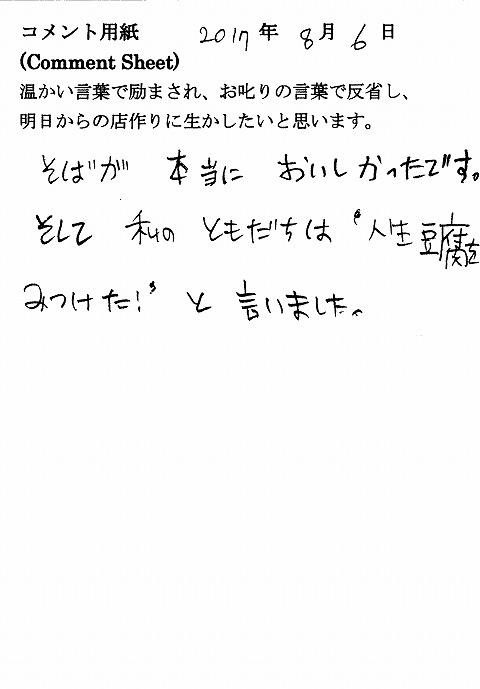 コメント用紙 2017年 8月 6日
(Comment Sheet)
温かい言葉で励まされ、お叱りの言葉で反省し、
明日からの店作りに生かしたいと思います。
そばが 本当に おいしかったです。
そして 私の ともだちは “人生豆腐を
みつけた!” と 言いました。